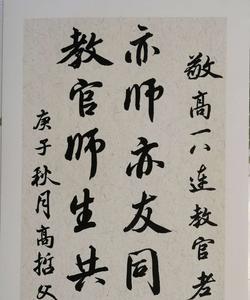 敬高一八连教官老
亦师亦友同
教官师生共
庚子秋月高哲父